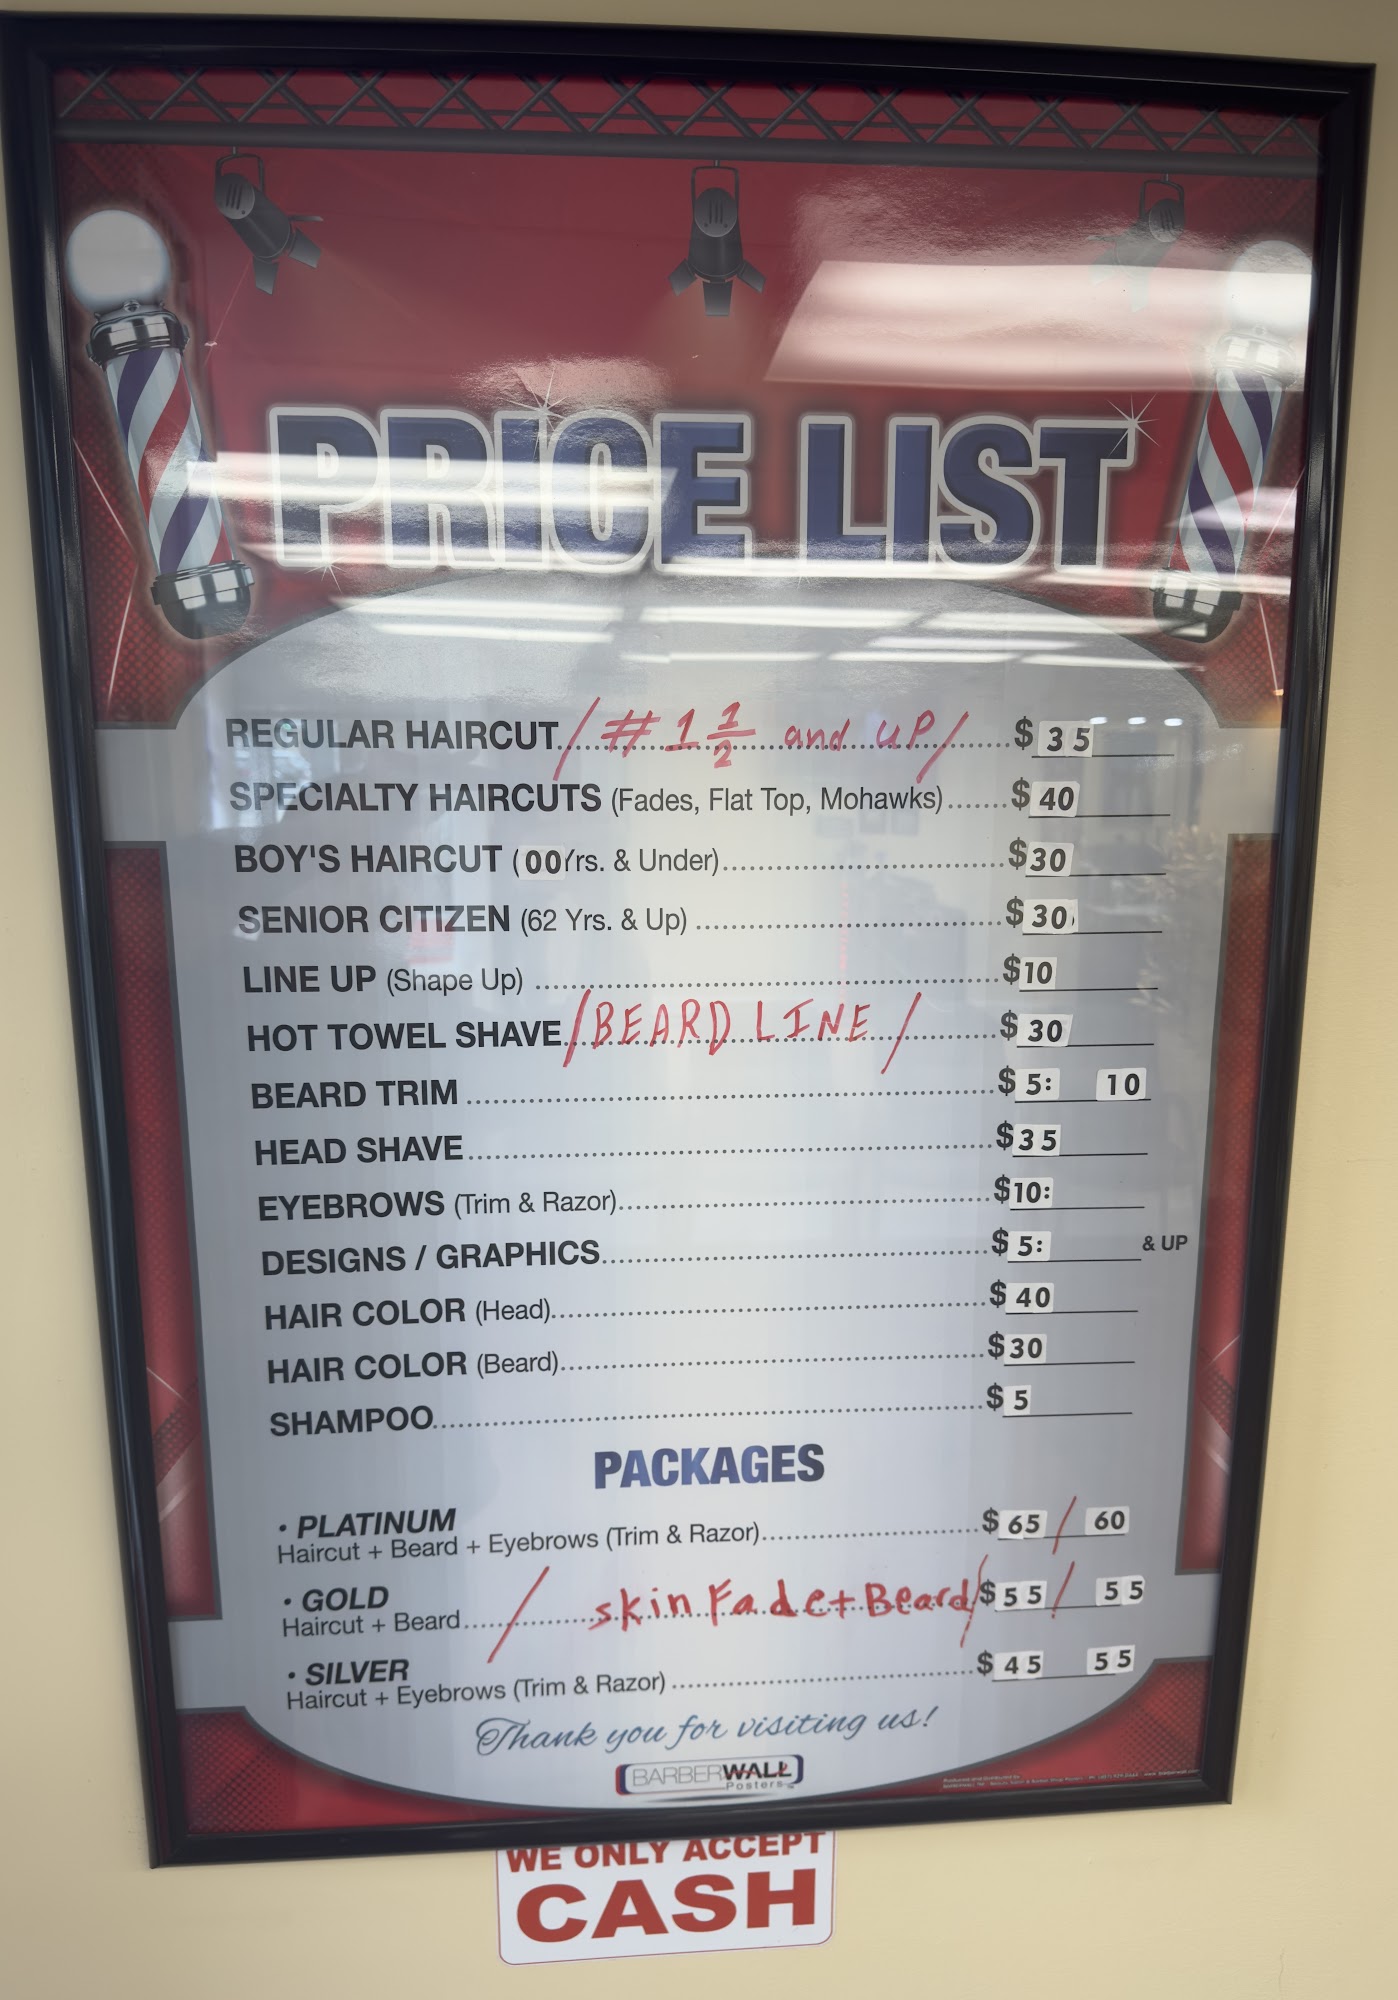 PRICE LIST
REGULAR HAIRCUT / #1 1/2 and UP / $ 35
SPECIALTY HAIRCUTS (Fades, Flat Top, Mohawks) $ 40
BOY'S HAIRCUT (00 Yrs. & Under) $ 30
SENIOR CITIZEN (62 Yrs. & Up) $ 30
LINE UP (Shape Up) $ 10
HOT TOWEL SHAVE / BEARD LINE / $ 30
BEARD TRIM $ 5: 10
HEAD SHAVE $ 35
EYEBROWS (Trim & Razor) $ 10:
DESIGNS / GRAPHICS $ 5: & UP
HAIR COLOR (Head) $ 40
HAIR COLOR (Beard) $ 30
SHAMPOO $ 5
PACKAGES
• PLATINUM
Haircut + Beard + Eyebrows (Trim & Razor) $ 65 / 60
• GOLD
Haircut + Beard / skin Fade + Beard / $ 55 / 55
• SILVER
Haircut + Eyebrows (Trim & Razor) $ 45 55
Thank you for visiting us!
BARBERWALL
Posters
WE ONLY ACCEPT
CASH